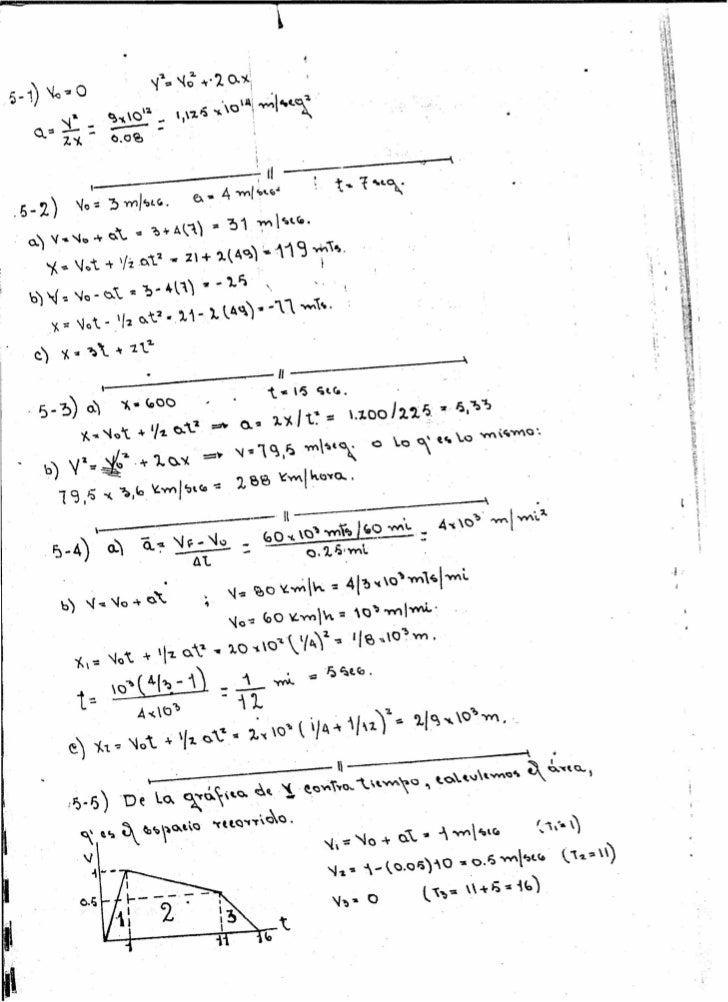 5-1) V₀ = 0 V² = V₀² + 2ax
a = V²/2x = 9x10¹²/0.08 = 1,125 x 10¹⁴ m/seg²
5-2) V₀ = 3 m/seg. a = 4 m/seg² ; t = 7 seg.
a) V = V₀ + at = 3+4(7) = 31 m/seg.
X = V₀t + 1/2 at² = 21 + 2(49) = 119 mts.
b) V = V₀ - at = 3-4(7) = -25
X = V₀t - 1/2 at² = 21-2(49) = -77 mts.
c) X = 3t + 2t²
5-3) a) X = 600 t = 15 seg.
X = V₀t + 1/2 at² ⇒ a = 2X/t² = 1.200/225 = 5,33
b) V² = V₀² + 2ax ⇒ V = 79,5 m/seg. o lo q' es lo mismo:
79,5 x 3,6 Km/seg = 288 Km/hora.
5-4) a) ā = VF - V₀/Δt = 60x10³ mts/60 mi/0.25 mi = 4x10³ m/mi²
b) V = V₀ + at ; V = 80 Km/h = 4/3x10³ mts/mi
V₀ = 60 Km/h = 10³ m/mi.
X₁ = V₀t + 1/2 at² = 20x10² (1/4)² = 1/8x10³ m.
t = 10³(4/3 - 1)/4x10³ = 1/12 mi = 5 seg.
c) X₂ = V₀t + 1/2 at² = 2x10³ (1/4 + 1/12)² = 2/9 x10³ m.
5-5) De la gráfica de V contra tiempo, calculemos el área,
q' es el espacio recorrido.
V₁ = V₀ + at = 1 m/seg (T₁=1)
V₂ = 1-(0.05)10 = 0.5 m/seg (T₂=11)
V₃ = 0 (T₃ = 11+5 = 16)
V
1
0.5
1 2 3
t
1 11 16